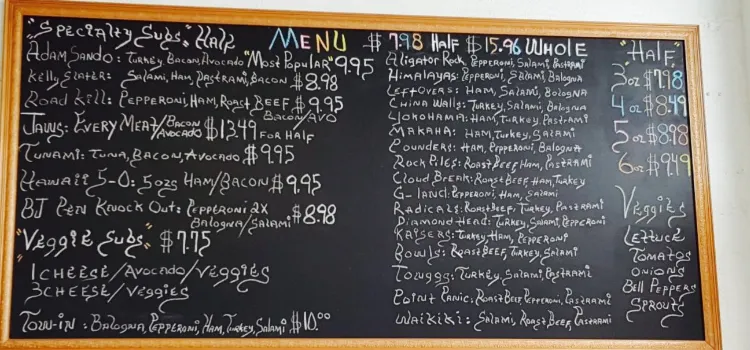 "Specialty Subs." Half
MENU $7.98 Half $15.96 WHOLE
Adam Sando: Turkey, Bacon, Avocado "Most Popular" 9.95
Kelly Slater: Salami, Ham, Pastrami, Bacon $8.98
Road Kill: Pepperoni, Ham, Roast Beef, Bacon/Avo $9.95
Jaws: Every Meat/Bacon Avocado $13.49 For Half
Tunami: Tuna, Bacon, Avocado $9.95
Hawaii 5-0: 5ozs Ham/Bacon $9.95
BJ Pen Knock Out: Pepperoni 2X Bologna/Salami $8.98
"Veggie Subs" $7.75
1 Cheese/Avocado/Veggies
3 Cheese/Veggies
Tow-in: Balogna, Pepperoni, Ham, Turkey, Salami $10.00
Aligator Rock: Pepperoni, Salami, Pastrami
Himalayas: Pepperoni, Salami, Balogna
Leftovers: Ham, Salami, Bologna
China Walls: Turkey, Salami, Balogna
Yokohama: Ham, Turkey, Pastrami
Makaha: Ham, Turkey, Salami
Pounders: Ham, Pepperoni, Balogna
Rock Piles: Roast Beef, Ham, Pastrami
Cloud Break: Roast Beef, Ham, Turkey
G-land: Pepperoni, Ham, Salami
Radicals: Roast Beef, Turkey, Pastrami
Diamond Head: Turkey, Salami, Pepperoni
Kaisers: Turkey, Ham, Pepperoni
Bowls: Roast Beef, Turkey, Salami
Turkey, Salami, Pastrami
Point Panic: Roast Beef, Pepperoni, Pastrami
Waikiki: Salami, Roast Beef, Pastrami
"Half"
3 oz $7.98
4 oz $8.49
5 oz $8.98
6 oz $9.49
Veggies
Lettuce
Tomatos
Onions
Bell Peppers
Sprouts